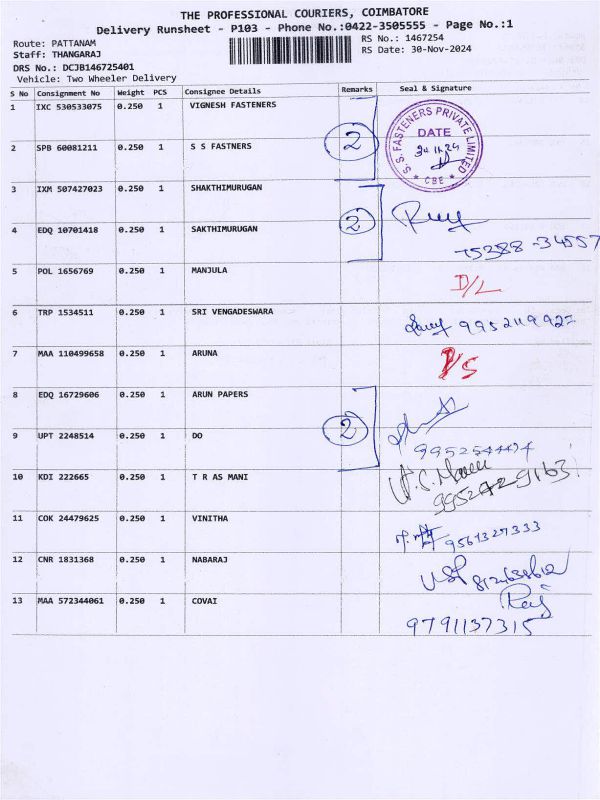 THE PROFESSIONAL COURIERS, COIMBATORE
Delivery Runsheet - P103 - Phone No.:0422-3505555 - Page No.:1
Route: PATTANAM
RS No.: 1467254
Staff: THANGARAJ
RS Date: 30-Nov-2024
DRS No.: DCJB146725401
Vehicle: Two Wheeler Delivery
S No Consignment No Weight PCS Consignee Details Remarks Seal & Signature
1 IXC 530533075 0.250 1 VIGNESH FASTENERS
S. S. FASTENERS PRIVATE LIMITED
DATE
* CBE *
2 SPB 60081211 0.250 1 S S FASTNERS 2
3 IXM 507427023 0.250 1 SHAKTHIMURUGAN
4 EDQ 10701418 0.250 1 SAKTHIMURUGAN 2
75388-34557
5 POL 1656769 0.250 1 MANJULA D/L
6 TRP 1534511 0.250 1 SRI VENGADESWARA
7 MAA 110499658 0.250 1 ARUNA
8 EDQ 16729606 0.250 1 ARUN PAPERS
9 UPT 2248514 0.250 1 DO 2
10 KDI 222665 0.250 1 T R AS MANI
11 COK 24479625 0.250 1 VINITHA 9561327333
12 CNR 1831368 0.250 1 NABARAJ
13 MAA 572344061 0.250 1 COVAI
9791137315